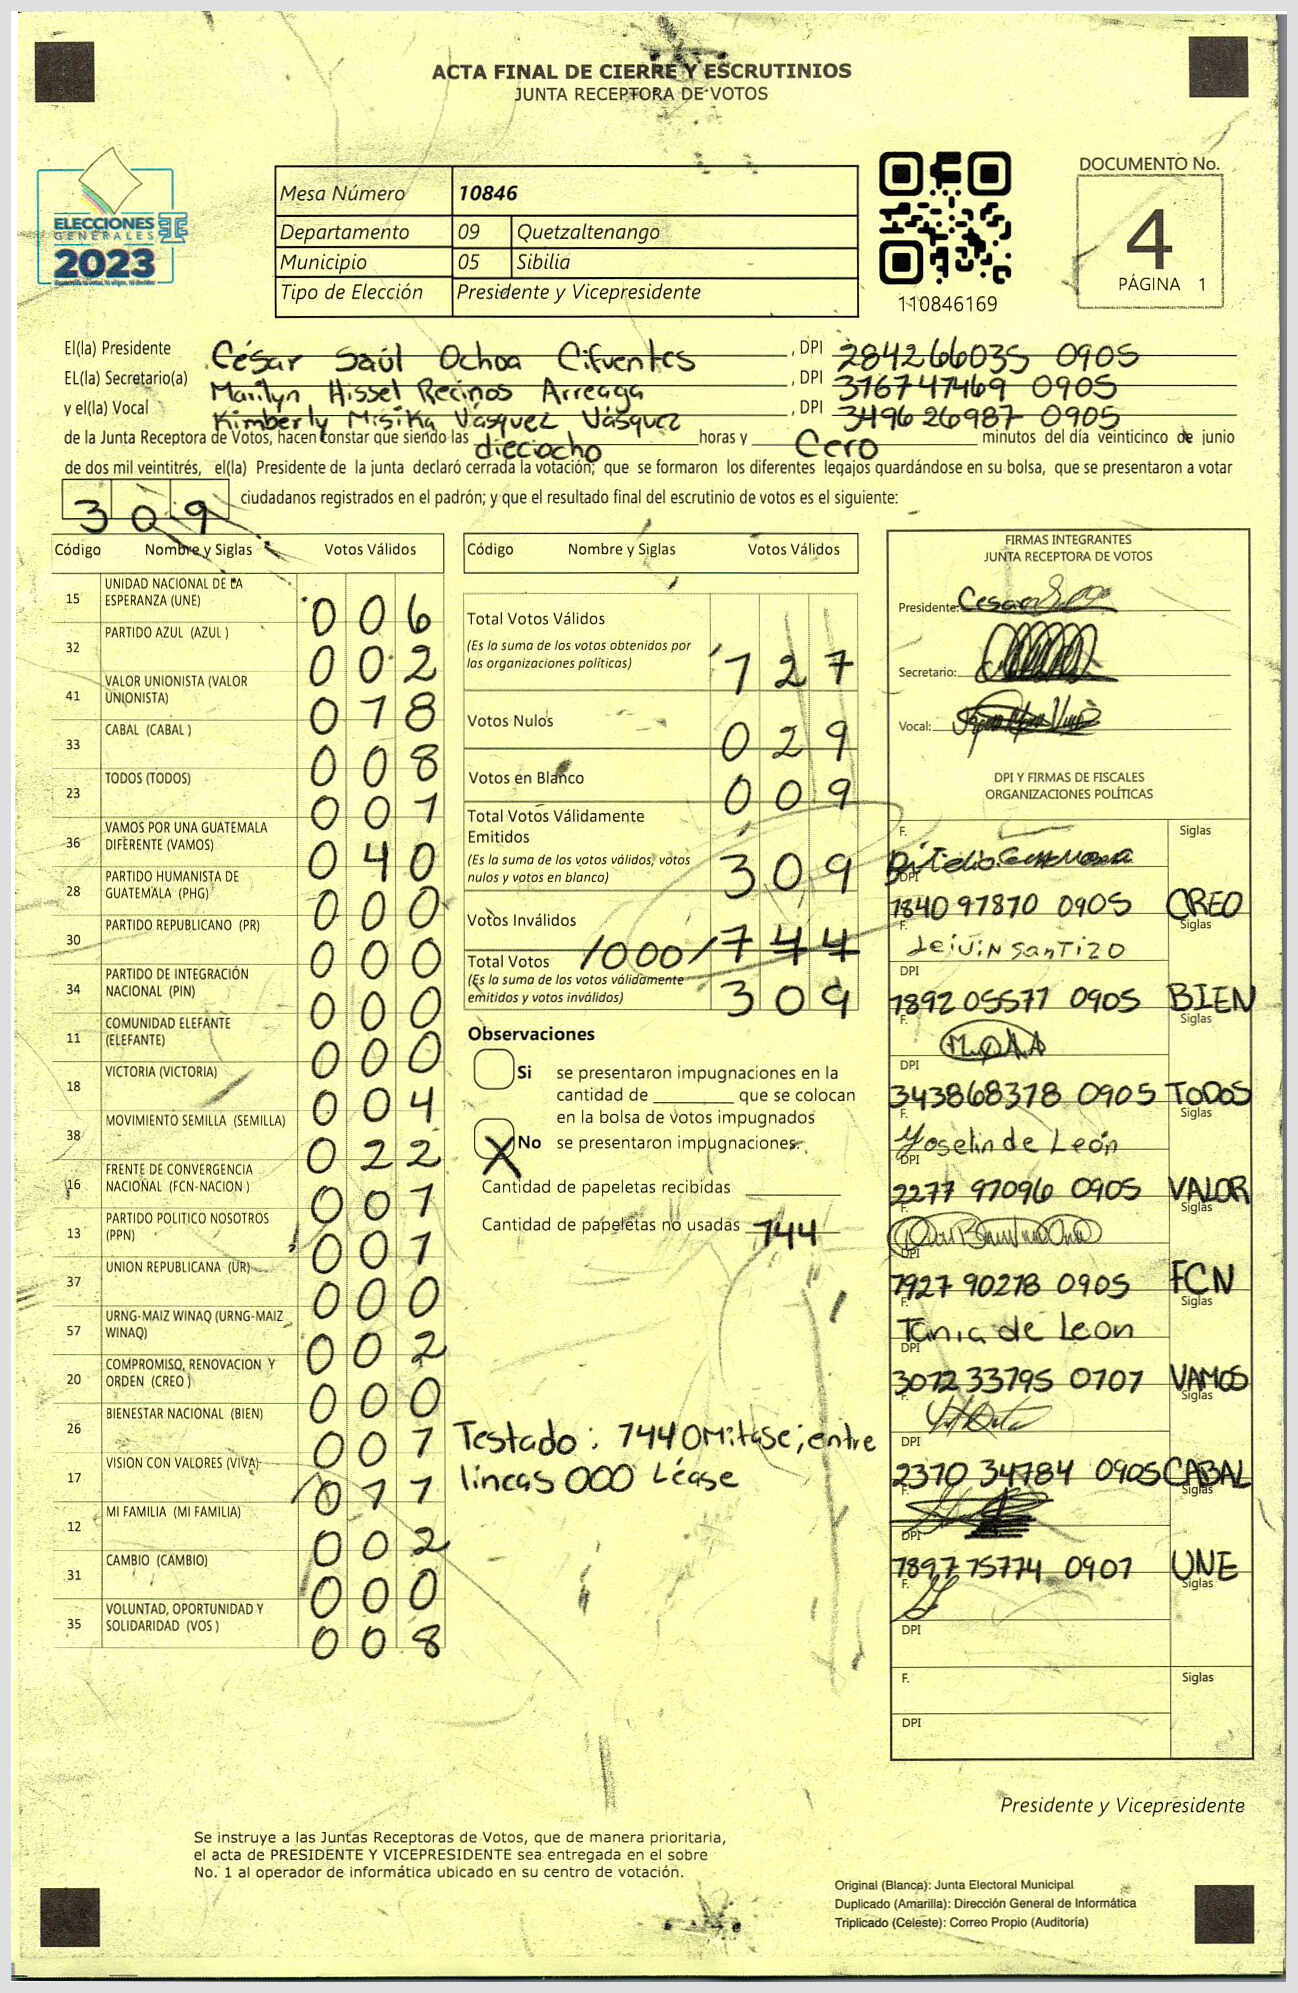 ACTA FINAL DE CIERRE Y ESCRUTINIOS
JUNTA RECEPTORA DE VOTOS
ELECCIONES
GENERALES
2023
Mesa Número 10846
Departamento 09 Quetzaltenango
Municipio 05 Sibilia
Tipo de Elección Presidente y Vicepresidente
110846169
DOCUMENTO No.
4
PÁGINA 1
El(la) Presidente César Saúl Ochoa Cifuentes, DPI 284266035 0905
EL(la) Secretario(a) Marilyn Hissel Recinos Arreaga, DPI 376747469 0905
y el(la) Vocal Kimberly Misika Vásquez Vásquez, DPI 349626987 0905
de la Junta Receptora de Votos, hacen constar que siendo las dieciocho horas y Cero minutos del día veinticinco de junio
de dos mil veintitrés, el(la) Presidente de la junta declaró cerrada la votación; que se formaron los diferentes legajos guardándose en su bolsa, que se presentaron a votar
309 ciudadanos registrados en el padrón; y que el resultado final del escrutinio de votos es el siguiente:
Código Nombre y Siglas Votos Válidos
15 UNIDAD NACIONAL DE LA ESPERANZA (UNE) 006
32 PARTIDO AZUL (AZUL ) 002
41 VALOR UNIONISTA (VALOR UNIONISTA) 078
33 CABAL (CABAL ) 008
23 TODOS (TODOS) 001
36 VAMOS POR UNA GUATEMALA DIFERENTE (VAMOS) 040
28 PARTIDO HUMANISTA DE GUATEMALA (PHG) 000
30 PARTIDO REPUBLICANO (PR) 000
34 PARTIDO DE INTEGRACIÓN NACIONAL (PIN) 000
11 COMUNIDAD ELEFANTE (ELEFANTE) 000
18 VICTORIA (VICTORIA) 004
38 MOVIMIENTO SEMILLA (SEMILLA) 022
16 FRENTE DE CONVERGENCIA NACIONAL (FCN-NACION ) 001
13 PARTIDO POLITICO NOSOTROS (PPN) 001
37 UNION REPUBLICANA (UR) 000
57 URNG-MAIZ WINAQ (URNG-MAIZ WINAQ) 002
20 COMPROMISO, RENOVACION Y ORDEN (CREO ) 000
26 BIENESTAR NACIONAL (BIEN) 001
17 VISION CON VALORES (VIVA) 011
12 MI FAMILIA (MI FAMILIA) 002
31 CAMBIO (CAMBIO) 000
35 VOLUNTAD, OPORTUNIDAD Y SOLIDARIDAD (VOS ) 008
Código Nombre y Siglas Votos Válidos
Total Votos Válidos
(Es la suma de los votos obtenidos por
las organizaciones políticas) 127
Votos Nulos 029
Votos en Blanco 009
Total Votos Válidamente
Emitidos
(Es la suma de los votos válidos, votos
nulos y votos en blanco) 309
Votos Inválidos /000/ 744
Total Votos
(Es la suma de los votos válidamente
emitidos y votos inválidos) 309
Observaciones
Si se presentaron impugnaciones en la
cantidad de ________ que se colocan
en la bolsa de votos impugnados
X No se presentaron impugnaciones.
Cantidad de papeletas recibidas
Cantidad de papeletas no usadas 744
Testado: 744 Omitase; entre
líneas 000 Léase
FIRMAS INTEGRANTES
JUNTA RECEPTORA DE VOTOS
Presidente:
Secretario:
Vocal:
DPI Y FIRMAS DE FISCALES
ORGANIZACIONES POLÍTICAS
F. Siglas
DPI 1840 97870 0905 CREO
F. Leivin Santizo Siglas
DPI 1892 05577 0905 BIEN
F. Siglas
DPI 343868378 0905 TODOS
F. Yoselin de León Siglas
DPI 2277 97096 0905 VALOR
F. Siglas
DPI 1927 90278 0905 FCN
F. Tania de Leon Siglas
DPI 3072 33795 0707 VAMOS
F. Siglas
DPI 2370 34784 0905 CABAL
F. Siglas
DPI 1897 75774 0907 UNE
F. Siglas
DPI
F. Siglas
DPI
Presidente y Vicepresidente
Se instruye a las Juntas Receptoras de Votos, que de manera prioritaria,
el acta de PRESIDENTE Y VICEPRESIDENTE sea entregada en el sobre
No. 1 al operador de informática ubicado en su centro de votación.
Original (Blanca): Junta Electoral Municipal
Duplicado (Amarilla): Dirección General de Informática
Triplicado (Celeste): Correo Propio (Auditoría)